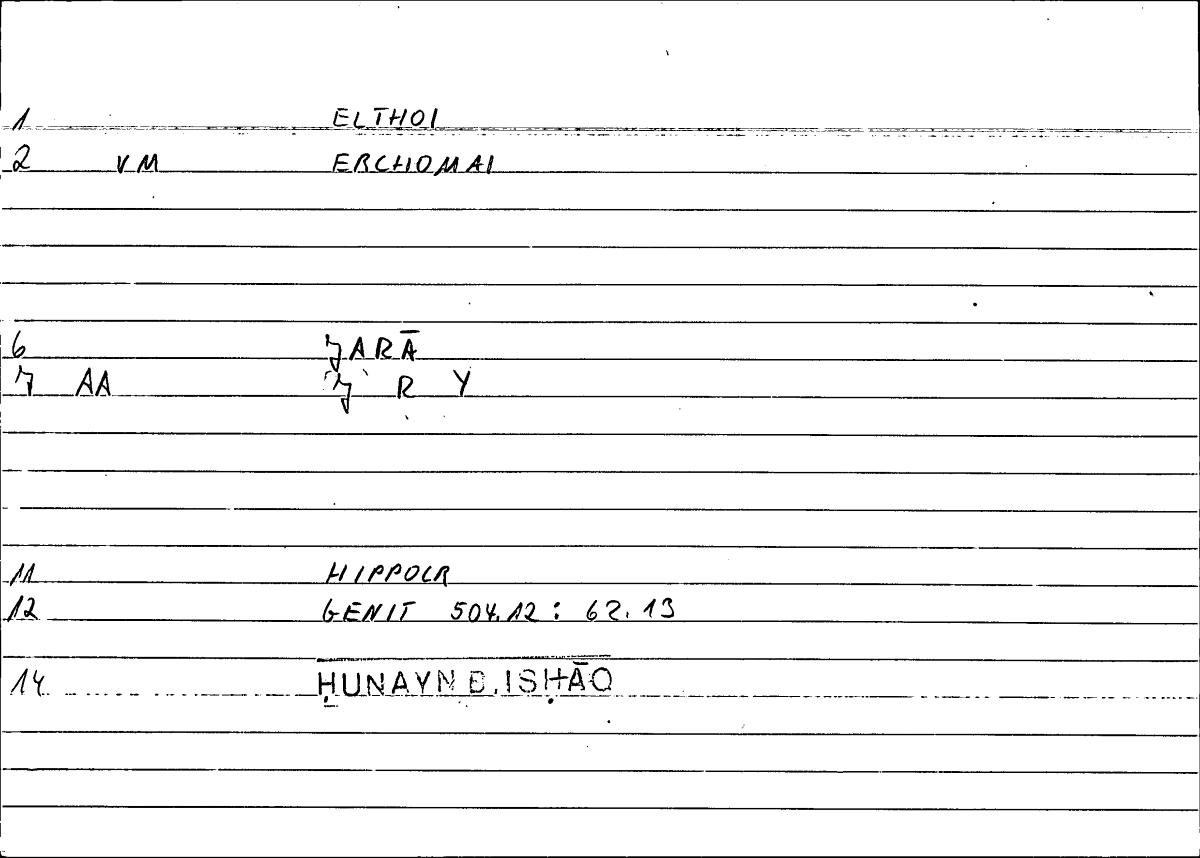 1 ELTHOI
2 VM ERCHOMAI
6 JARĀ
7 AA J R Y
11 HIPPOCR
12 GENIT 504.12 : 62.13
14 ḤUNAYN B. ISḤĀQ